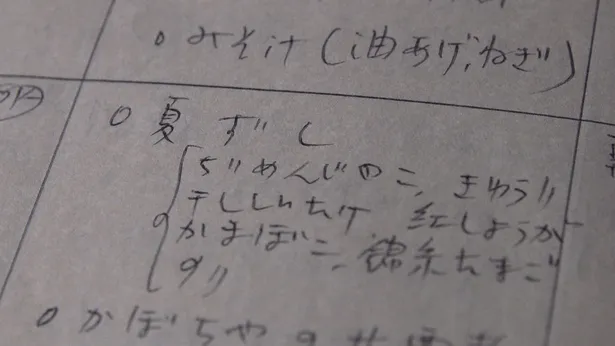 ○みそ汁(油あげ、ねぎ)
○夏ずし
ちりめんじゃこ、きゅうり
干ししいたけ、紅しょうが
かまぼこ、錦糸たまご
のり
○かぼちゃの